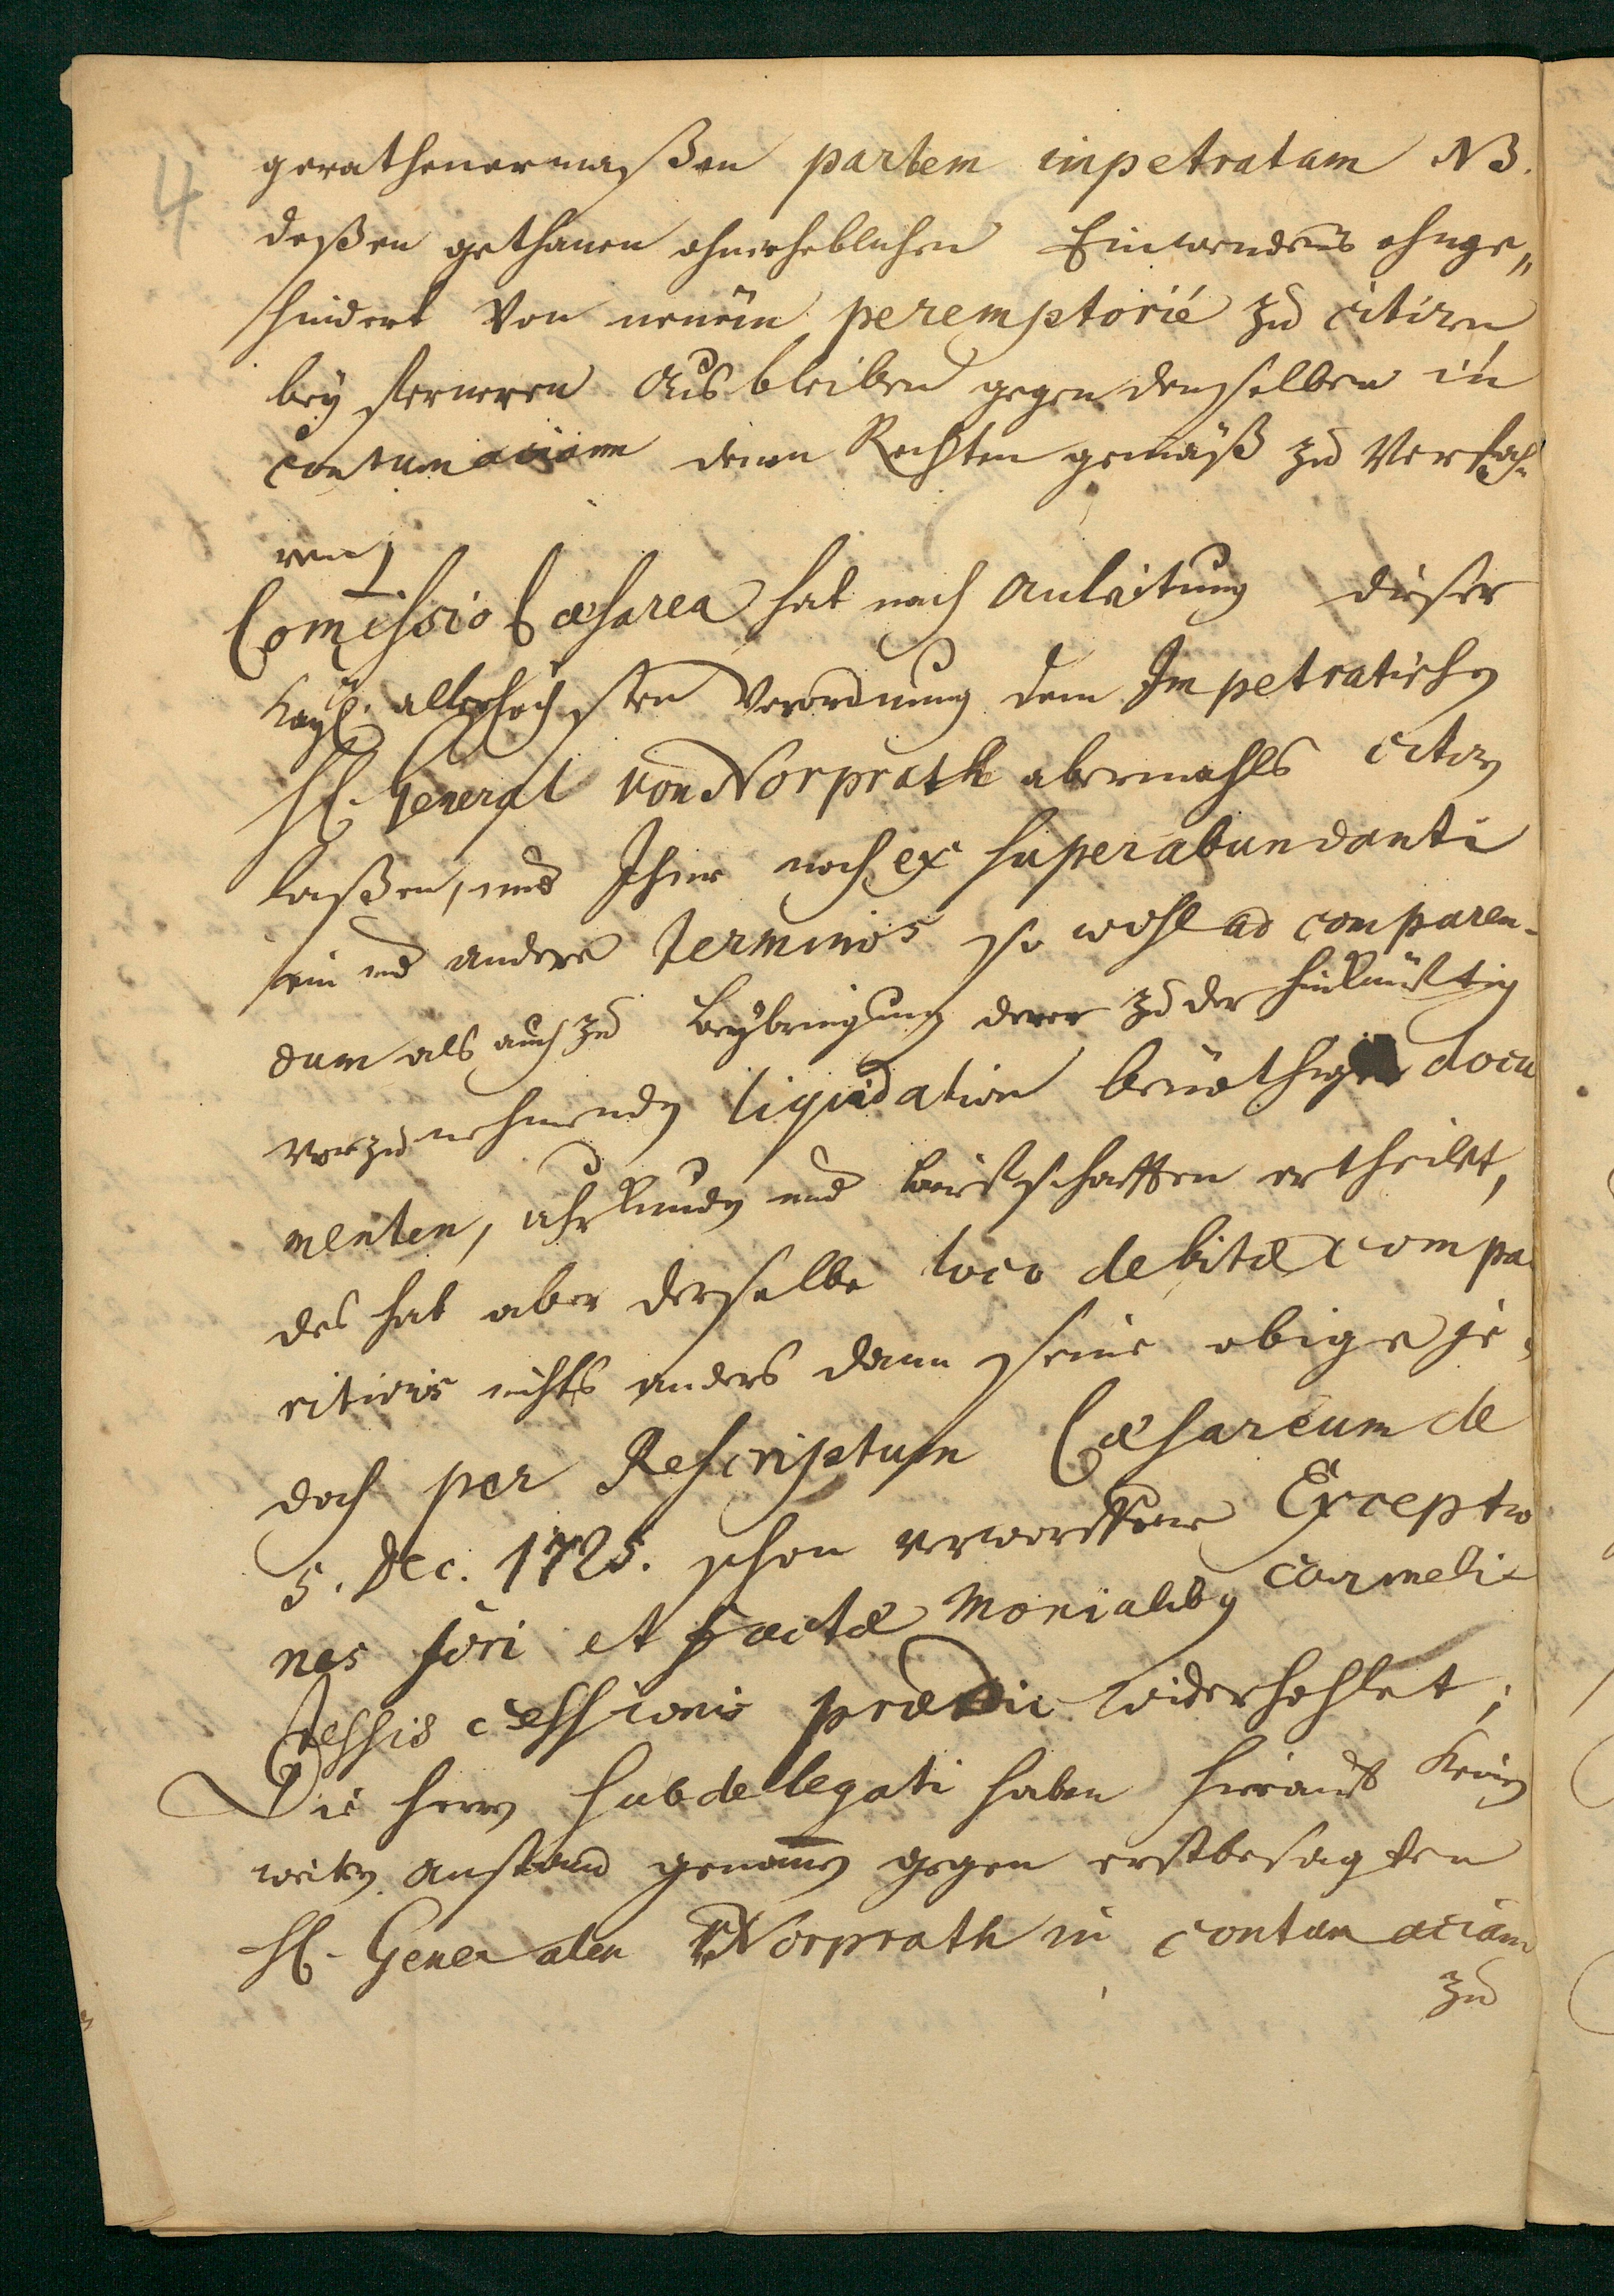 4
gerathenermaßen partem impetratam NB.
deßen gethanen ohnerheblichen Einwendens ohnge„
hindert von neuem peremptorié zu citiren,
bey fernerem Ausbleiben gegen denselben in
contumaciam denen Rechten gemäß zu Verfah„
ren
Comissio Cæsarea hat nach Anleitung dieser
Kayl. allerhöchsten Verordnung dem Impetratischen
H. General von Norprath abermahls citiren
laßen, und Ihme noch ex superabundanti
ein und andere Terminos so wohl ad comparen-
dum als auch zu Beybringung derer zu der hinkünfftig
vorzunehmenden liquidation benöthigten docu
menten, uhrkunden und briefschafften ertheilet,
des hat aber derselbe loco debitæ compa
ritionis nichts anders dann seine obige je„
doch per Rescriptum Cæsareum de
5. Dec. 1725. schon verworffene Exceptio
nes fori et factæ Monialibus Carmeli
tessis cessionis præviæ widerhohlet;
Die Herren Subdelegati haben hierauf keinen
weitern Anstand genommen gegen erstbesagten
H. Generalen v. Norprath in contumaciam
zu